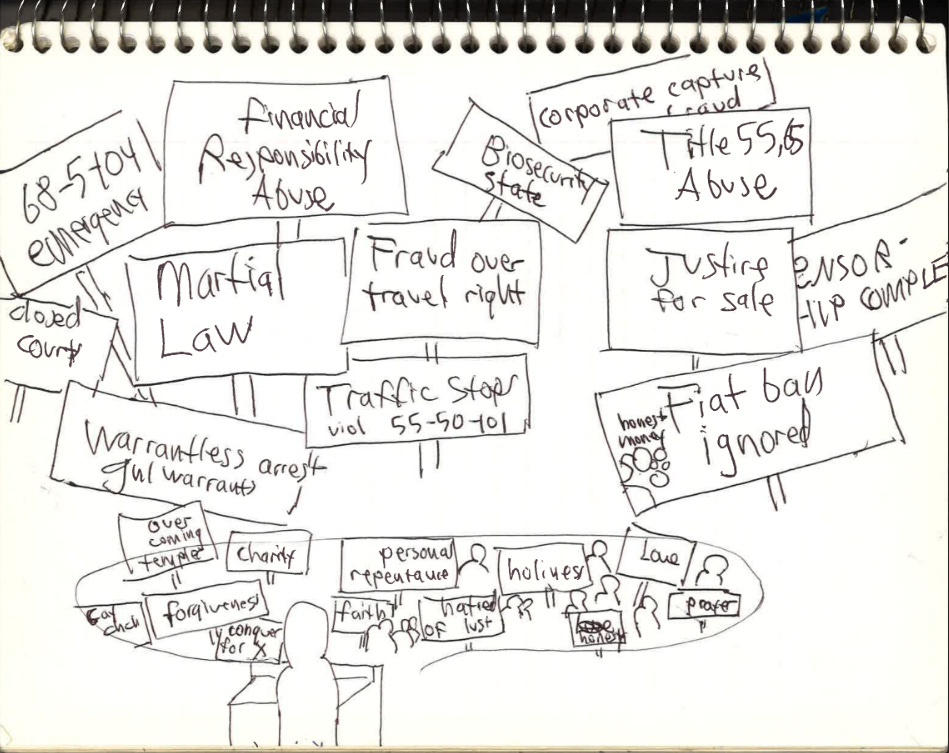 corporate capture
fraud
Financial
Responsibility
Abuse
68-5-104
emergency
Biosecurity
State
Title 55, 65
Abuse
Martial
Law
Fraud over
travel right
Justice
for sale
ENSOR-
HIP COMPLE
closed
courts
Traffic Stops
viol 55-50-101
Fiat ban
ignored
honest
money
Warrantless arrest
gnl warrants
over
coming
temple
charity
personal
repentance
holiness
Love
forgiveness
faith
hatred
of lust
honest
prayer
conquer
for X